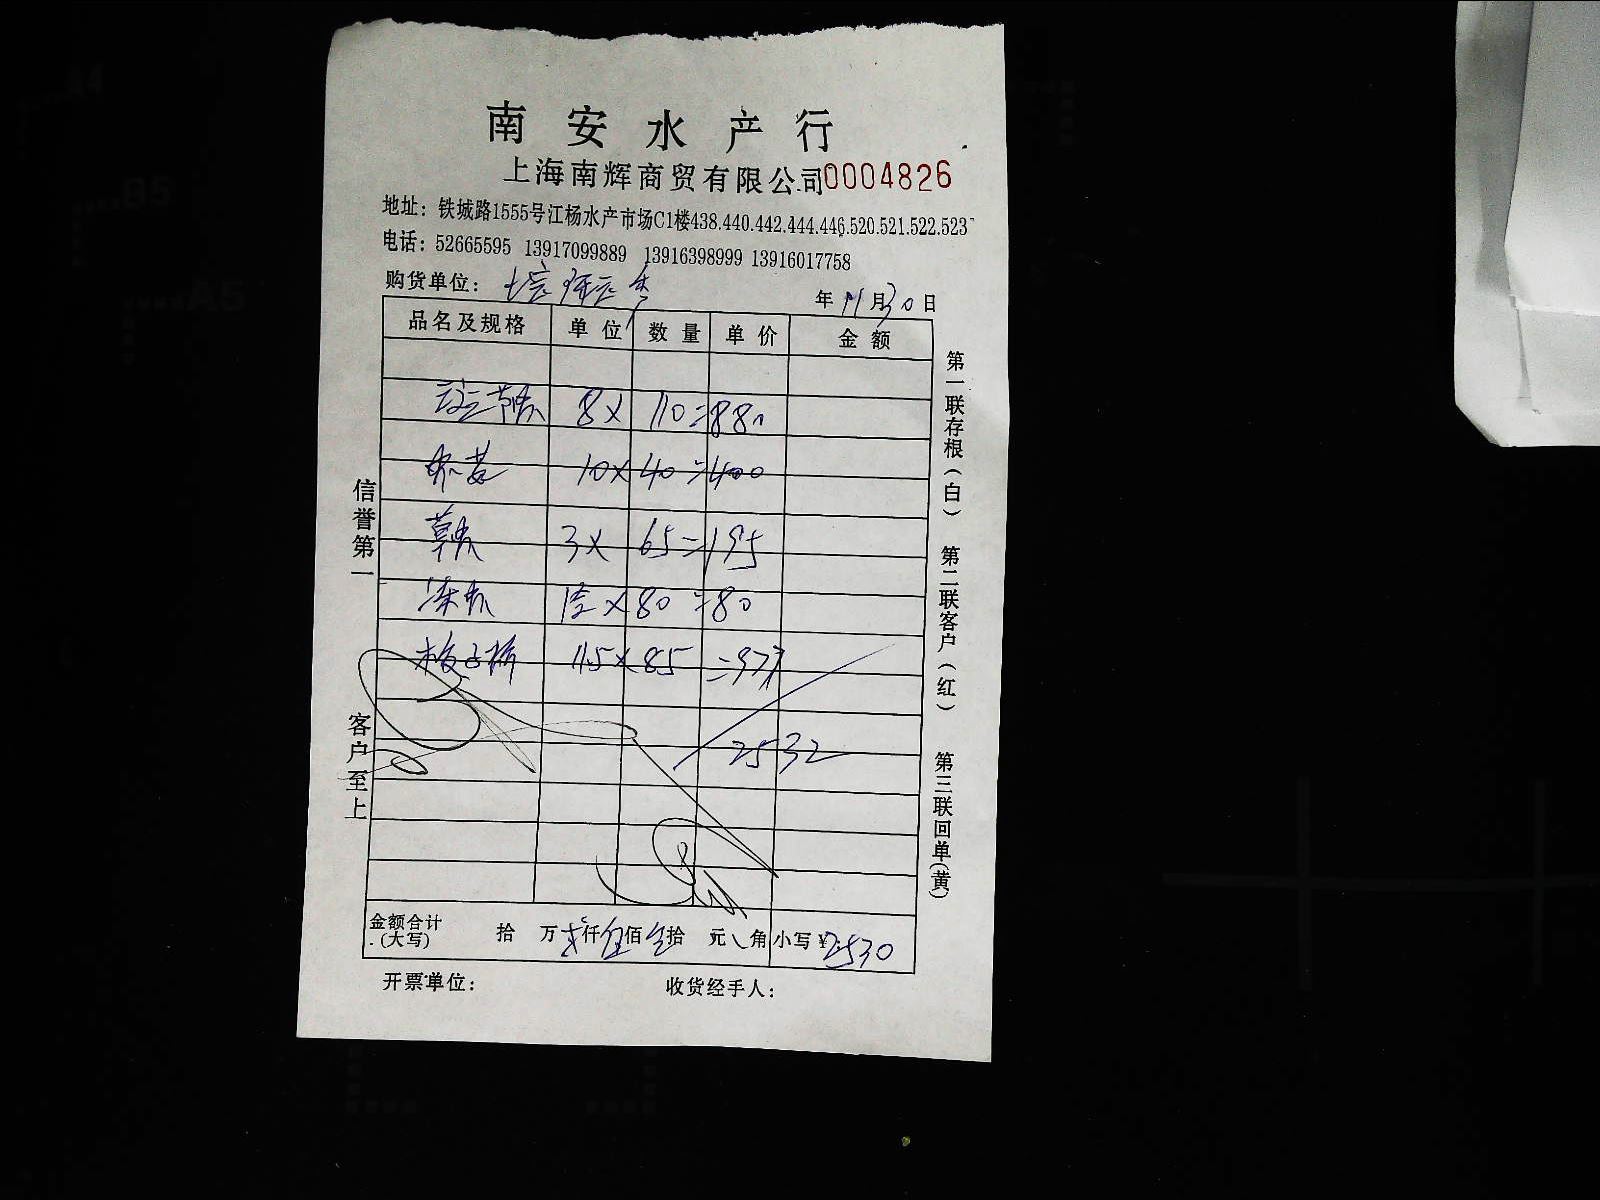 南安水产行
上海南辉商贸有限公司 0004826
地址：铁城路1555号江杨水产市场C1楼438.440.442.444.446.520.521.522.523
电话：52665595 13917099889 13916398999 13916017758
购货单位：
年 11 月 30 日
品名及规格 单位 数量 单价 金额
8× 110=880
10×40=400
草虾 3× 65=195
冻虾 1盒×80=80
11.5×85=977
2532
金额合计(大写) 拾 万 贰仟伍佰叁拾 元 角 小写¥2530
开票单位： 收货经手人：
信誉第一 客户至上
第一联存根(白) 第二联客户(红) 第三联回单(黄)